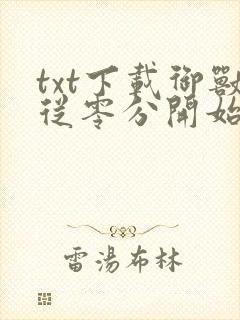 txt下載御獸
從零分開始
雷湯布林